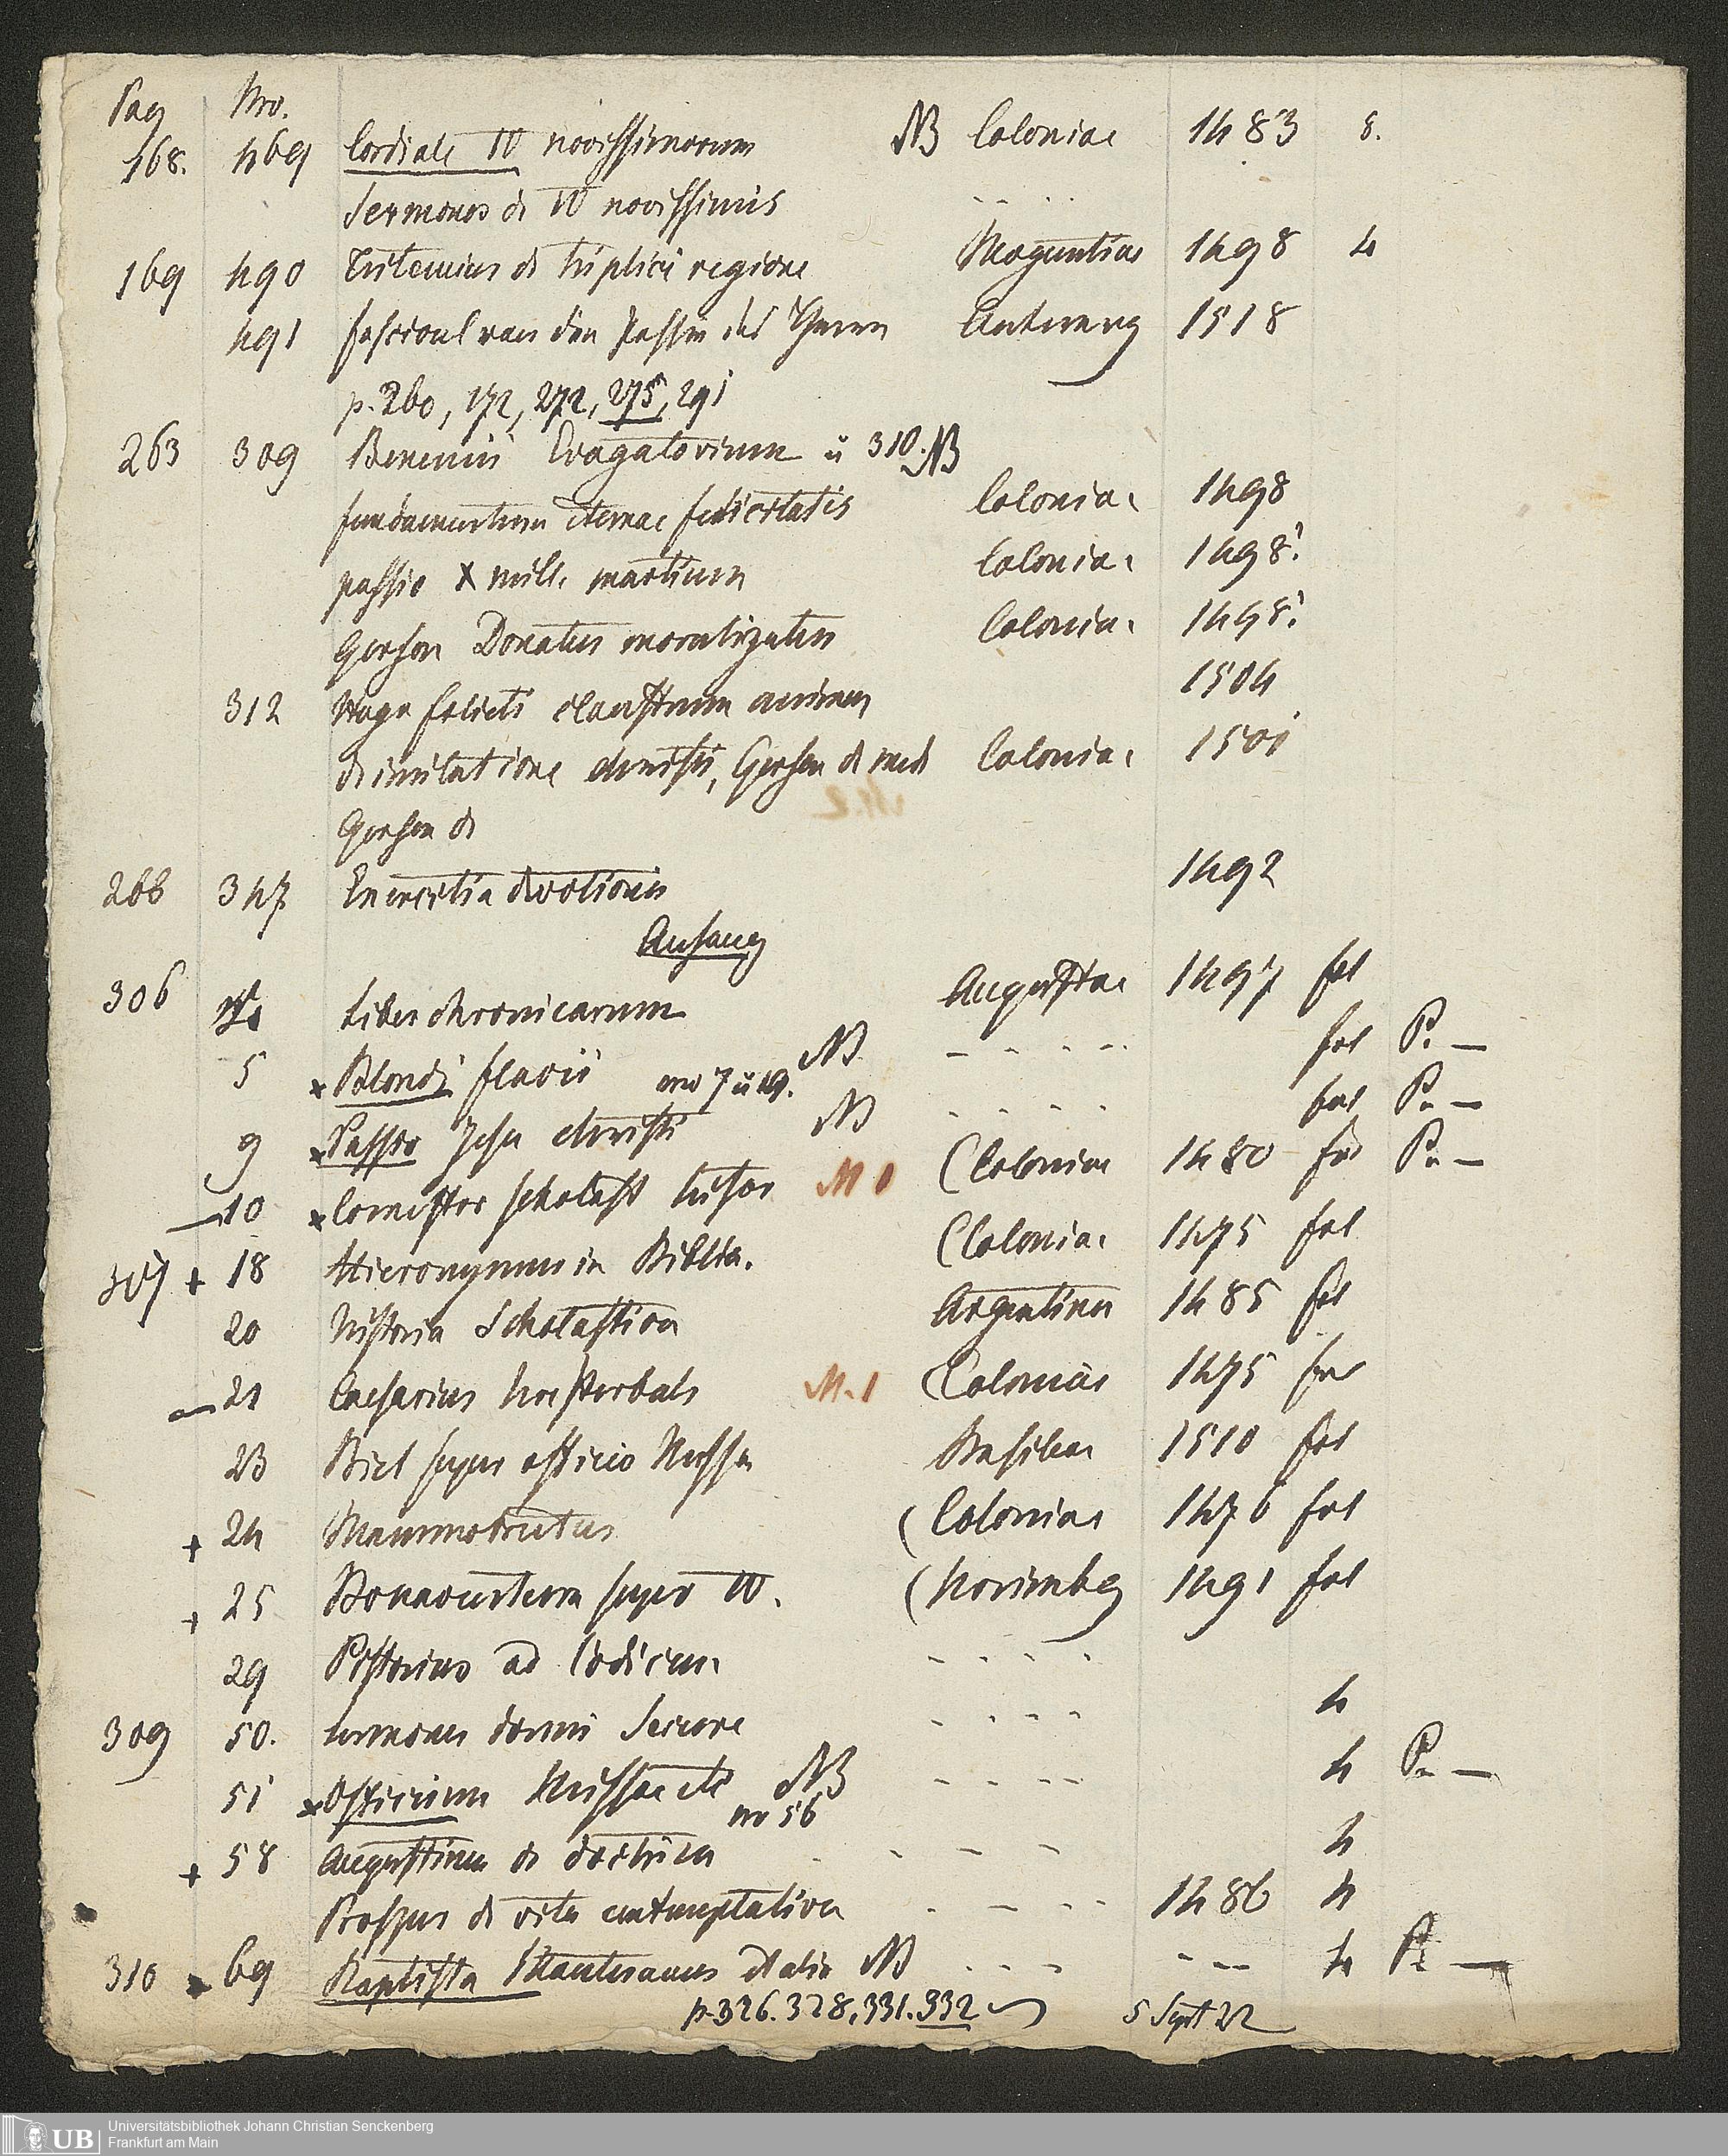 Pag Nro.
168. 469 Cordiale IV novissimorum NB Coloniae 1483 8.
Sermones de IV novissimis
169 490 Tritemius de triplici regione Moguntiae 1498 4
491 fascicul van den Passie des Heren Antwerp 1518
p. 260, 172, 272, 275, 291
263 309 Evagatorium u 310. NB
fundamentum eternae felicitatis Coloniae 1498
passio X mill. martirum Coloniae 1498?
Gerson Donatus moralizatus Coloniae 1498?
312 Hugo folieti claustrum animae 1504
de imitatione christi, Gerson de med Coloniae 1501
Gerson de
266 347 Exercitia devotionis 1492
Anhang
306 4 Liber chronicarum Augustae 1497 fol
5 Blondi flavii nro 7 u 19. NB fol P. —
9 Passio Jesu christi NB fol P. —
10 Comestor scholast histor (Coloniae 1480 fol P. —
307 + 18 Hieronymus in Biblia. (Coloniae 1475 fol
20 historia Scholastica Argentinae 1485 fol
21 Caesarius heisterbach M. 1 (Coloniae 1475 fol
23 Biel super officio Missae Basileae 1510 fol
+ 24 Mammotrectus (Coloniae 1476 fol
+ 25 Bonaventura super IV. (Norimbg 1491 fol
29 Pistorius ad Codicem
309 50. sermones dormi Secure 4
51 Officium Missae etc NB 4 P. —
nro 56
+ 58 Augustinus de doctrina 4
Prosper de vita contemplativa 1486 4
310 69 Baptista Mantuanus NB 4 P. —
p. 326. 328, 331. 332 5 Sept 22
Universitätsbibliothek Johann Christian Senckenberg
UB
Frankfurt am Main